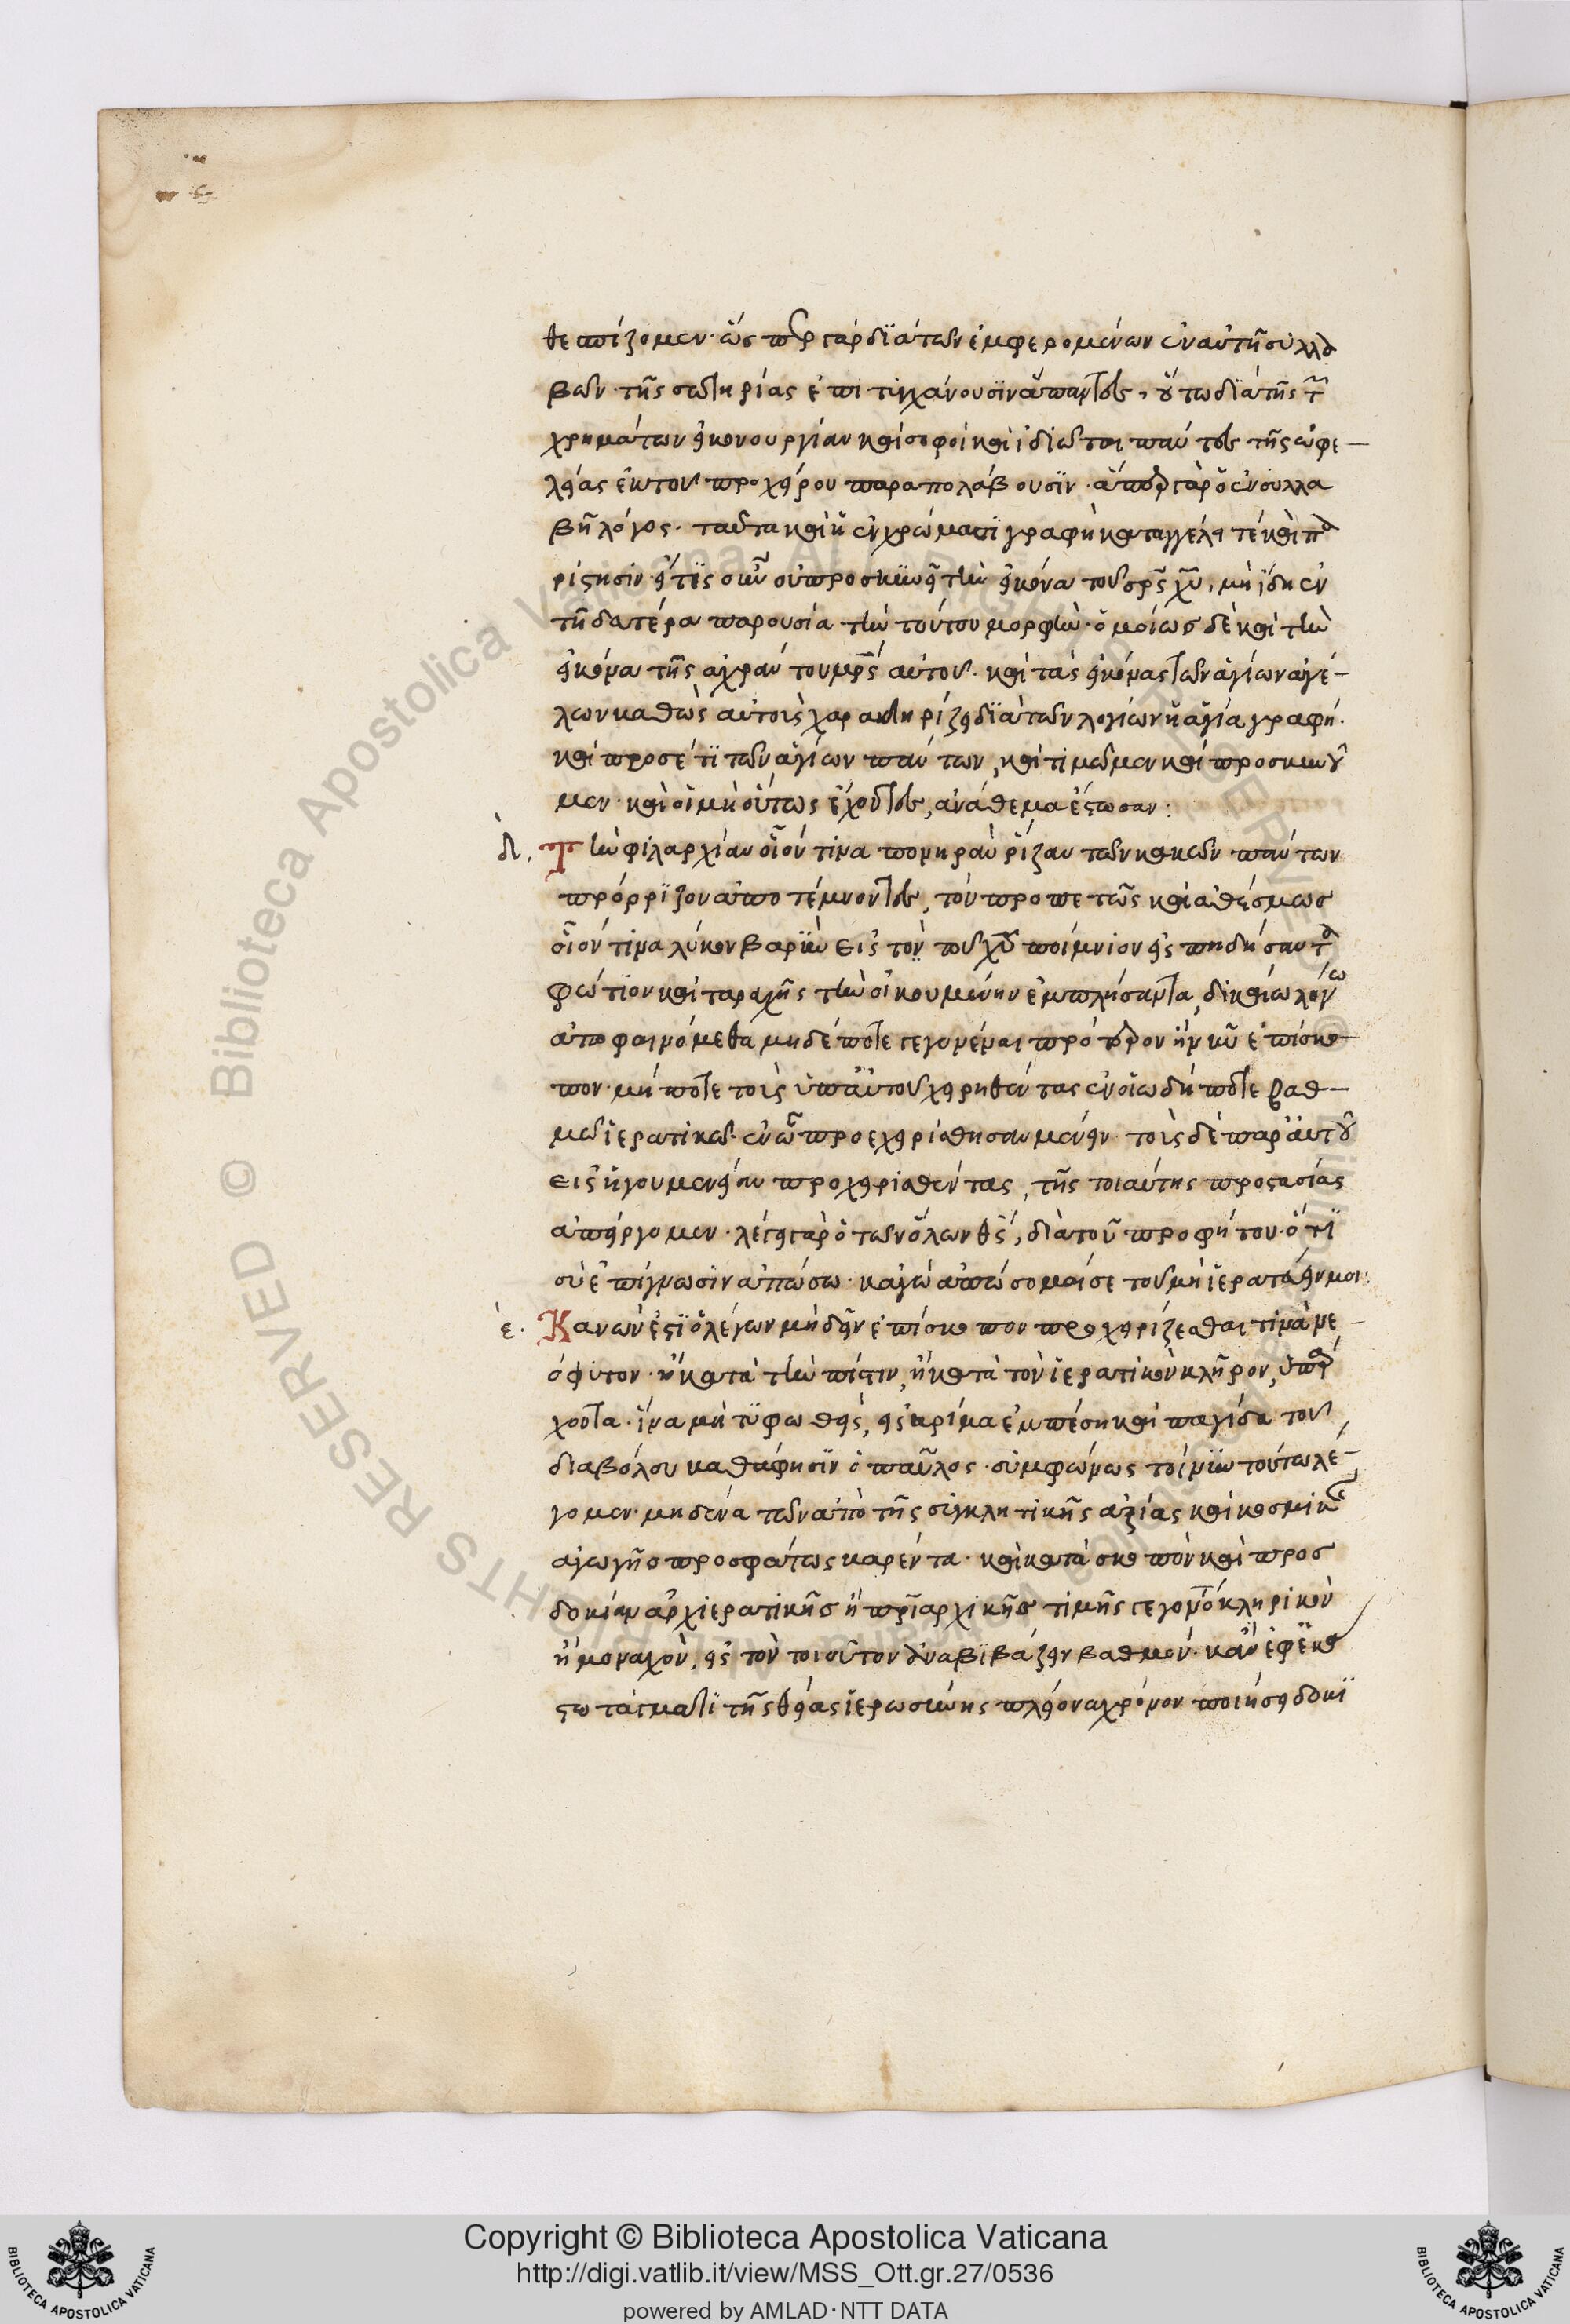 θεσπίζομεν· ὥσπερ γὰρ δϊὰ τῶν ἐμφερομένων ἐν αὐτῆ συλλα
βῶν τῆς σωτηρίας ἐπιτυγχάνουσϊν ἅπαντες, οὕτω δϊὰ τῆς τῶν
χρημάτων εἰκονουργίαν καὶ σοφοὶ καὶ ἰδιῶται πάντες τῆς ὠφε-
λείας ἐκ τοῦ προχείρου παραπολάβουσϊν· ἅπερ γὰρ ὁ ἐν συλλα
βῆ λόγος· ταῦτα καὶ ἡ ἐν χρώμασϊ γραφὴ καταγγέλει τέ καὶ πα
ρίστησιν· εἴ τϊς οὖν οὐ προσκϋνεῖ τὴν εἰκόνα τοῦ σρς χυ, μὴ ἴδη ἐν
τῆ δατέρα παρουσία τὴν τούτου μορφὴν· ὁμοίωσ δὲ καὶ τὴν
εἰκόνα τῆς ἀχράντου μρς αὐτοῦ· καὶ τὰς εἰκόνας τῶν ἁγίων ἀγγέ-
λων καθὼς αὐτοὶς χαρακτηρίζει δϊὰ τῶν λογίων ἡ ἁγία γραφή·
καὶ προσέτϊ τῶν ἁγίων πάντων, καὶ τιμῶμεν καὶ προσκυνοῦ
μεν· καὶ οἱ μὴ οὕτως ἔχοντες, ἀνάθεμα ἔστωσαν:
δ. Τὴν φιλαρχίαν οἷόν τινα πονηρὰν ῥίζαν τῶν κακῶν πάντων
πρόρρϊζον ἀποτέμνοντες, τὸν προπετῶς καὶ ἀθέσμως
οἷόν τινα λύκον βαρϋν εἰς τὸν τοῦ χυ ποίμνιον εἰσπηδήσαντα
φώτιον καὶ ταραχῆς τὴν οἰκουμένην ἐμπλήσαντα, δικαίω λόγω
ἀποφαινόμεθα μηδέποτε γεγονέναι πρότερον ἢ νῦν ἐπίσκο
πον· μήποτε τοὶς ὑπ' αὐτοῦ χειρηθέντας ἐν οἵω δήποτε βαθ-
μῶ ἱερατικῶ· ἐν ὧ προεχειρίσθησαν μένειν· τοὶς δὲ παρ' αὐτοῦ
εἰς ἡγουμενείαν προχειρισθέντας, τῆς τοιαύτης προστασίας
ἀπείργομεν· λέγει γὰρ ὁ τῶν ὅλων θς, διὰ τοῦ προφήτου· ὅτϊ
σὺ ἐπίγνωσιν ἀπώσω· καγὼ ἀπώσομαί σε τοῦ μὴ ἱερατεύειν μοι:
ε. Κανών ἐστϊ ὁ λέγων μὴ δεῖν ἐπίσκοπον προχειρίζεσθαι τινὰ νε-
όφυτον· ἢ κατὰ τὴν πίστιν, ἢ κατὰ τὸν ἱερατικὸν κλῆρον, ὑπάρ
χοντα· ἵνα μὴ τϋφωθεὶς, εἰς κρίμα ἐμπέση καὶ παγίδα τοῦ
διαβόλου καθάφησϊν ὁ παῦλος· συμφώνως τοίνϋν τούτω λέ-
γομεν· μηδένα τῶν ἀπὸ τῆς σϊγκλητικῆς ἀξίας καὶ κοσμικῆς
ἀγωγῆσ προσφάτως καρέντα· καὶ κατὰ σκοπὸν καὶ προσ
δοκίαν ἀρχιερατικῆσ ἢ πριαρχικῆσ τιμῆς γεγονὸ κληρικὸν
ἢ μοναχὸν, εἰς τὸν τοιοῦτον ἀναβϊβάζειν βαθμόν· κἂν ἐφ' ἑκά
στω τάγματϊ τῆς θείας ἱερωσύνης πλείονα χρόνον ποιήσει δοκϊ
Copyright © Biblioteca Apostolica Vaticana
http://digi.vatlib.it/view/MSS_Ott.gr.27/0536
powered by AMLAD·NTT DATA